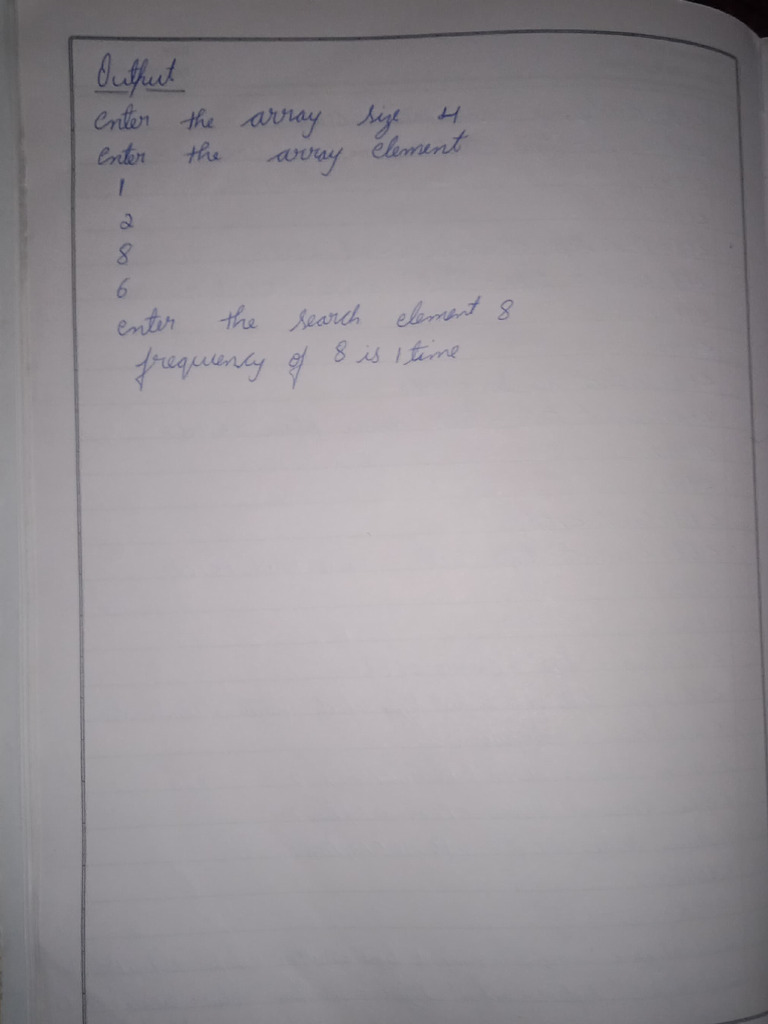 Output
Enter the array size 4
Enter the array element
1
2
8
6
enter the search element 8
frequency of 8 is 1 time